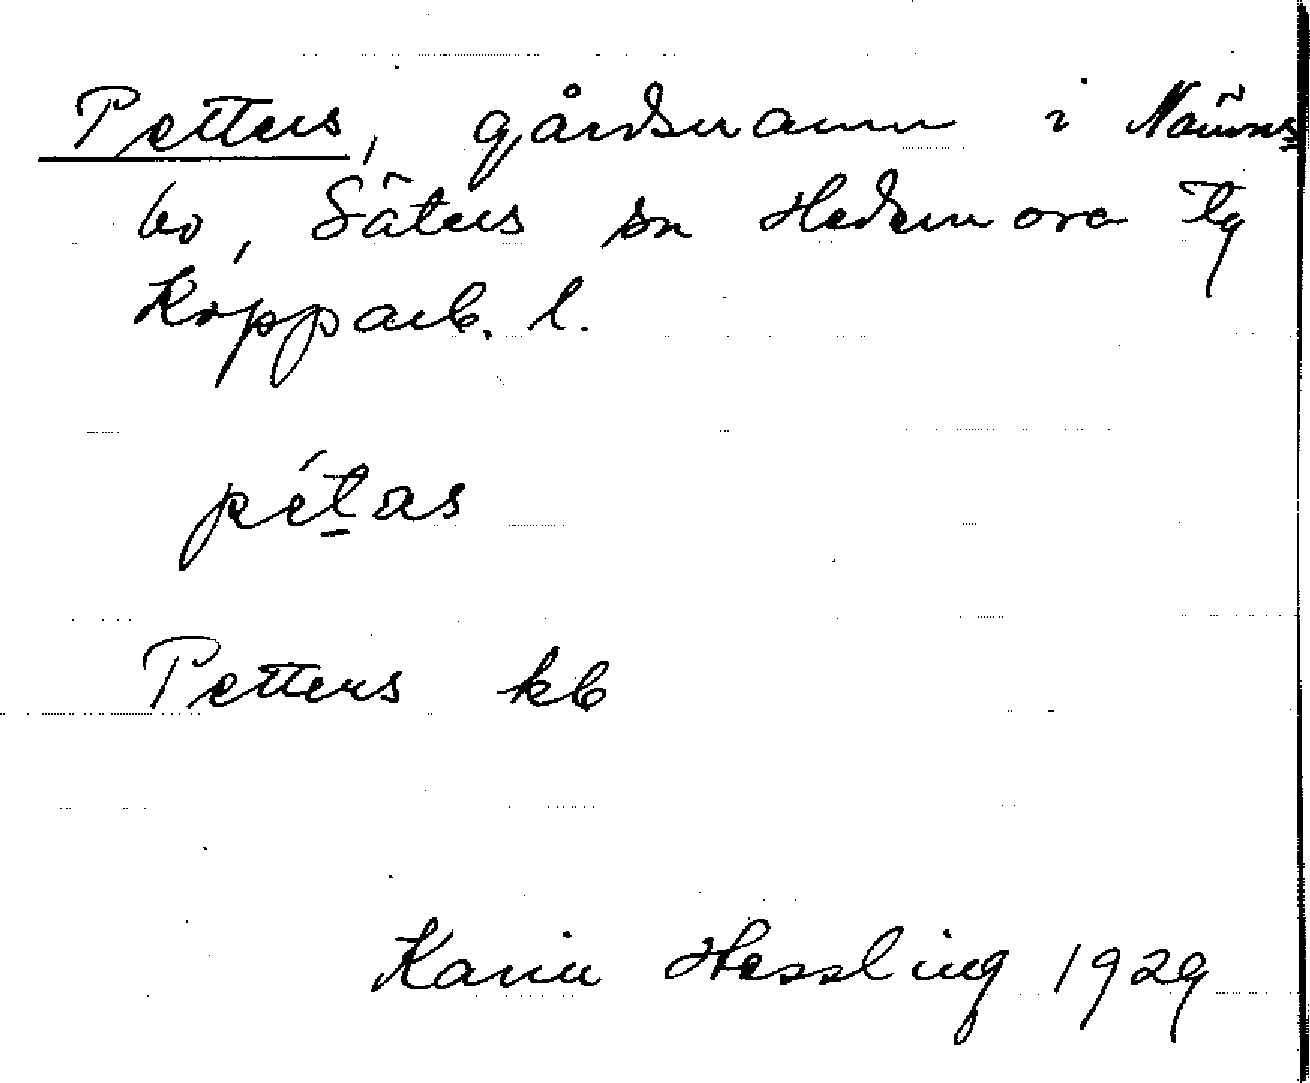 Petters, gårdsnamn i Nämns
bo, Säters sn Hedemora tg
Kopparb. l.
pétas
Petters kb
Karin Hessling 1929